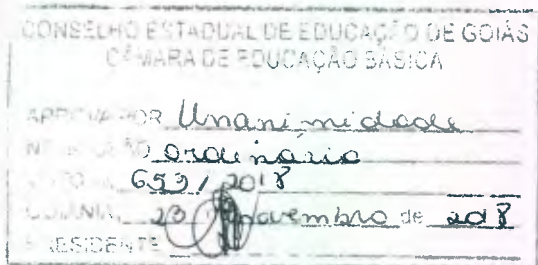 CONSELHO ESTADUAL DE EDUCAÇÃO DE GOIÁS
CÂMARA DE EDUCAÇÃO BÁSICA
APROVA POR Unanimidade
NA ordinário
653/2018
GOIÂNIA, 23 novembro de 2018
PRESIDENTE